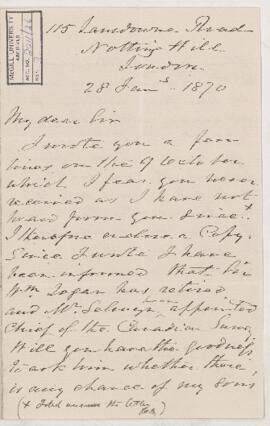 McGILL UNIVERSITY
ARCHIVES
ACC. NO.
REF.
115 Lansdowne Road
Notting Hill
London
28 Jany. 1870
My dear Sir
I wrote you a few
lines on the 9 October
which I fear you never
received as I have not
heard from you since +
I therefore enclose a Copy.
Since I wrote I have
been informed that Sir
Wm Logan has retired
and Mr. Selwyn been appointed
Chief of the Canadian Survey
Will you have the goodness
to ask him whether there
is any chance of my sons
(+ did answer the letter